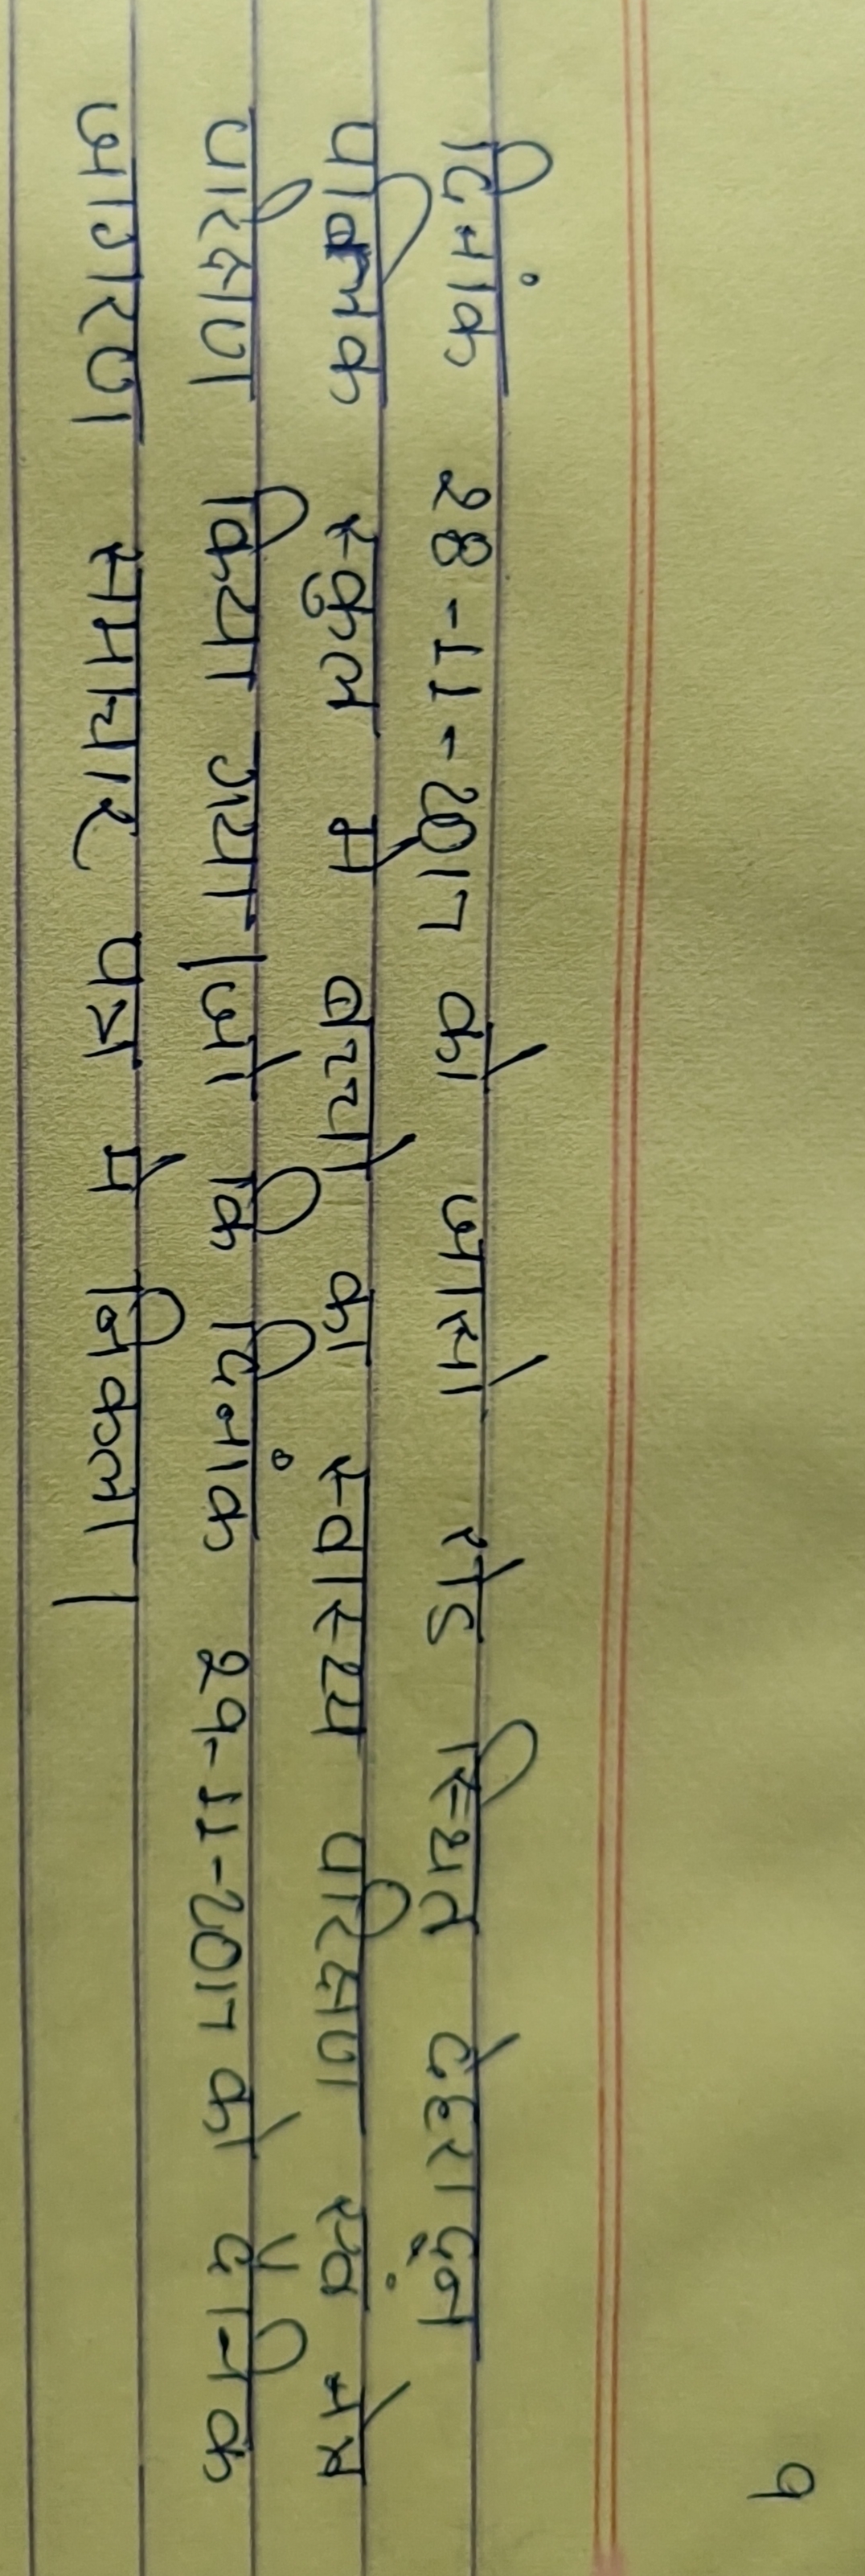 9
दिनांक 28-11-2017 को जासो रोड स्थित देहरादून
पब्लिक स्कुल में बच्चों का स्वास्थ्य परिक्षण एवं नेत्र
परिक्षण किया गया। जो कि दिनांक 29-11-2017 को दैनिक
जागरण समाचार पत्र में निकला।